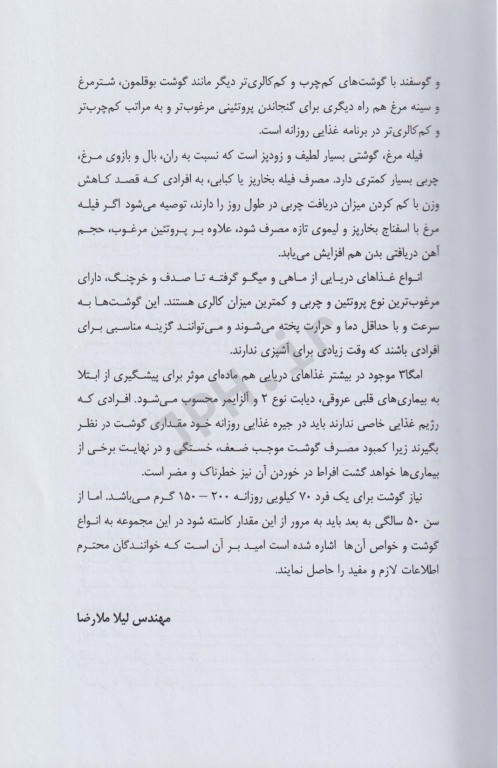 و گوسفند با گوشت‌های کم‌چرب و کم‌کالری‌تر دیگر مانند گوشت بوقلمون، شترمرغ
و سینه مرغ هم راه دیگری برای گنجاندن پروتئینی مرغوب‌تر و به مراتب کم‌چرب‌تر
و کم‌کالری‌تر در برنامه غذایی روزانه است.
فیله مرغ، گوشتی بسیار لطیف و زودپز است که نسبت به ران، بال و بازوی مرغ،
چربی بسیار کمتری دارد. مصرف فیله بخارپز یا کبابی، به افرادی که قصد کاهش
وزن با کم کردن میزان دریافت چربی در طول روز را دارند، توصیه می‌شود اگر فیله
مرغ با اسفناج بخارپز و لیموی تازه مصرف شود، علاوه بر پروتئین مرغوب، حجم
آهن دریافتی بدن هم افزایش می‌یابد.
انواع غذاهای دریایی از ماهی و میگو گرفته تا صدف و خرچنگ، دارای
مرغوب‌ترین نوع پروتئین و چربی و کمترین میزان کالری هستند. این گوشت‌ها به
سرعت و با حداقل دما و حرارت پخته می‌شوند و می‌توانند گزینه مناسبی برای
افرادی باشند که وقت زیادی برای آشپزی ندارند.
امگا۳ موجود در بیشتر غذاهای دریایی هم ماده‌ای موثر برای پیشگیری از ابتلا
به بیماری‌های قلبی عروقی، دیابت نوع ۲ و آلزایمر محسوب می‌شود. افرادی که
رژیم غذایی خاصی ندارند باید در جیره غذایی روزانه خود مقداری گوشت در نظر
بگیرند زیرا کمبود مصرف گوشت موجب ضعف، خستگی و در نهایت برخی از
بیماری‌ها خواهد گشت افراط در خوردن آن نیز خطرناک و مضر است.
نیاز گوشت برای یک فرد ۷۰ کیلویی روزانه ۲۰۰ – ۱۵۰ گرم می‌باشد. اما از
سن ۵۰ سالگی به بعد باید به مرور از این مقدار کاسته شود در این مجموعه به انواع
گوشت و خواص آن‌ها اشاره شده است امید بر آن است که خوانندگان محترم
اطلاعات لازم و مفید را حاصل نمایند.
مهندس لیلا ملارضا
JPH.ir